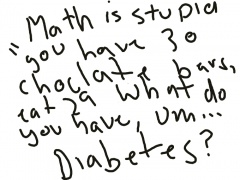 "Math is stupid
you have 30
choclate bars,
eat 29 What do
you have, um...
Diabetes?